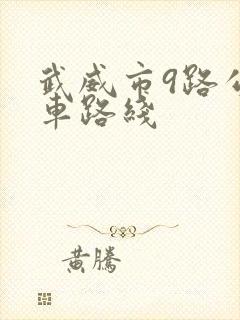 武威市9路公
車路綫
黄騰